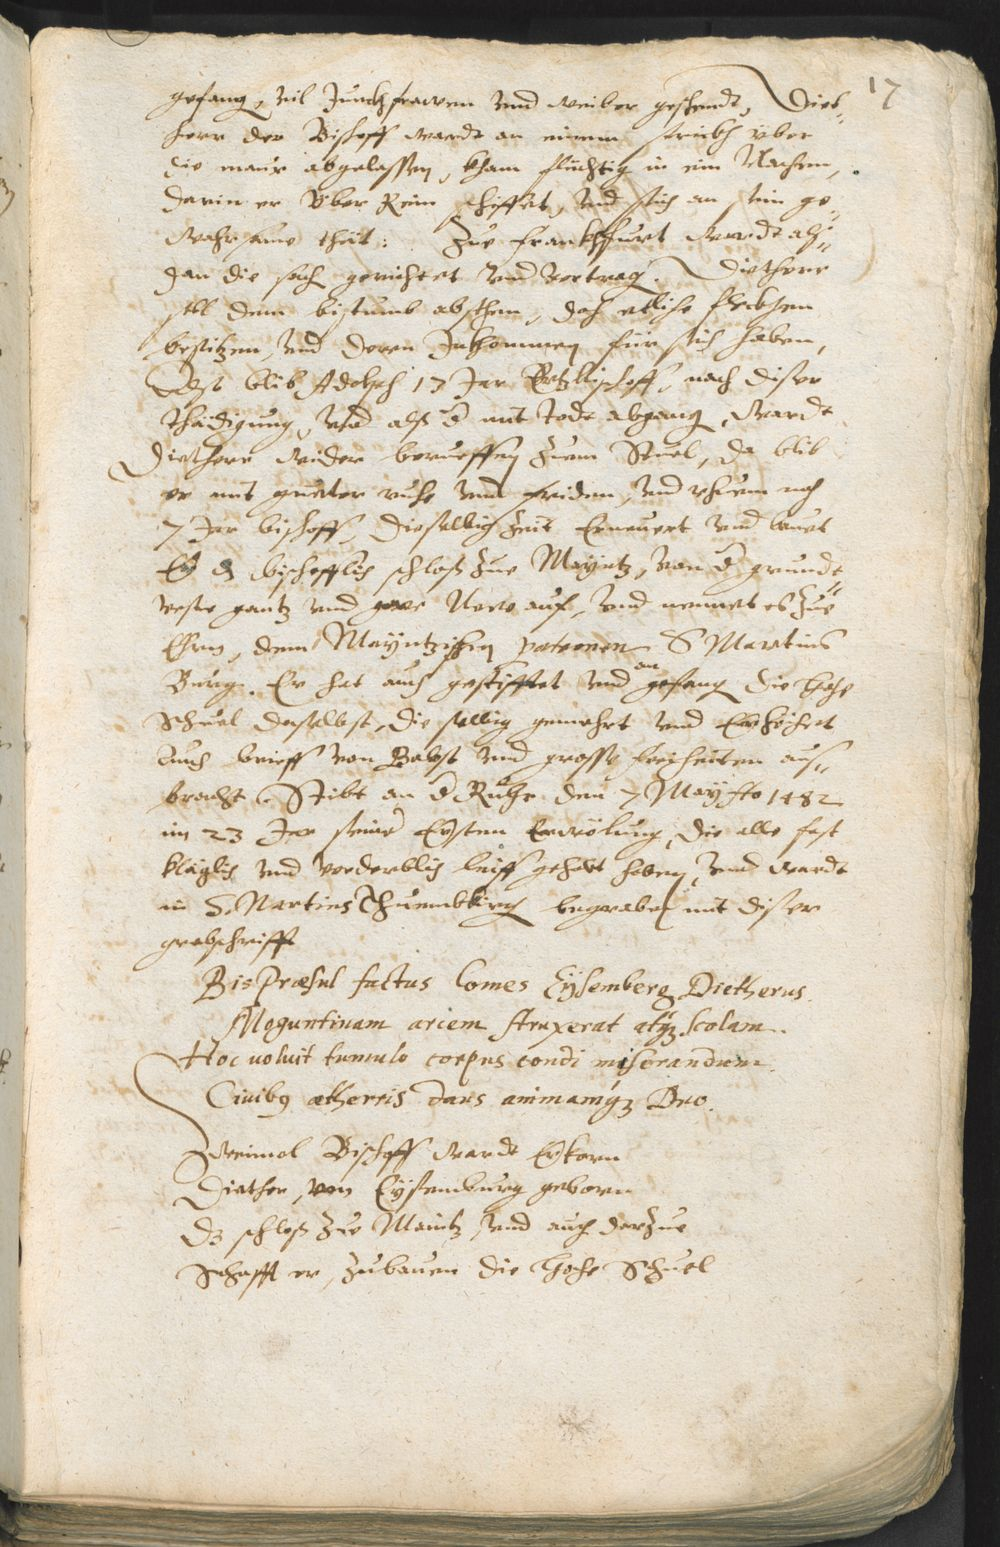 17
gefang, vil Junckfrawen vnd weiber geschendt, Diet-
herr der Bischoff wardt an einem strickh vber
die maur abgelassen, kham fluchtig in ein Nachen,
darin er vber Rein schiffet, vnd sich an sein ge-
wahrsame thät: Zue Franckhfurt wardt als-
dan die sach gericht vnd vertrag. Diether
soll dem bistumb abstehen, doch etliche fleckhen
besitzen, vnd deren Inkhommen für sich haben,
Also blib Adolph 13 Jar Ertzbischoff, nach diser
thädigung, vnd alß d mit todt abgang, wardt
Diether wider berueffen zum Stuel, da blib
er mit gueter ruhe vnd friden, vnd rhuem noch
7 Jar bischoff, dieselbig Zeit Erneuert vnd bauet
Er dz bischofflich schloß Zue Mayntz, von d grundt
veste gantz vnd gar Neuw auf, vnd nennet es Zue
Ehren, dem Mayntzischen patronen S Martins
Burg. Er hat auch gestifftet vnd angefang die hohe
Schuel daselbst, die selbig gemehrt vnd Erhöhet
Auch brieff von Babst vnd grosse freiheiten auß-
bracht. Stibt an d Ruhr den 7 May Ao 1482
im 23 Jar seiner Ersten Erwölung, die alle fast
kläglich vnd verderblich leuff gehabt haben, vnd wardt
in S. Martins Thuembkirch begraben mit diser
grabschrifft
Bis Præsul factus Comes Eÿsemberg Dietherus
Moguntinam arcem struxerat atqz scolam.
Hoc uoluit tumulo corpus condi miserandum.
Ciuibg ætherris dans animamqz Deo.
Zweimol Bischoff wardt Erkorn
Diether von Eÿsenburg geborn
Dz schloß Zue Maintz, vnd auch darzue
Schafft er, Zubauen die hohe Schuel